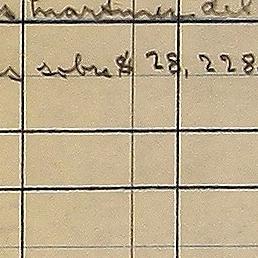 s Martinez del
s sobre $ 28,228